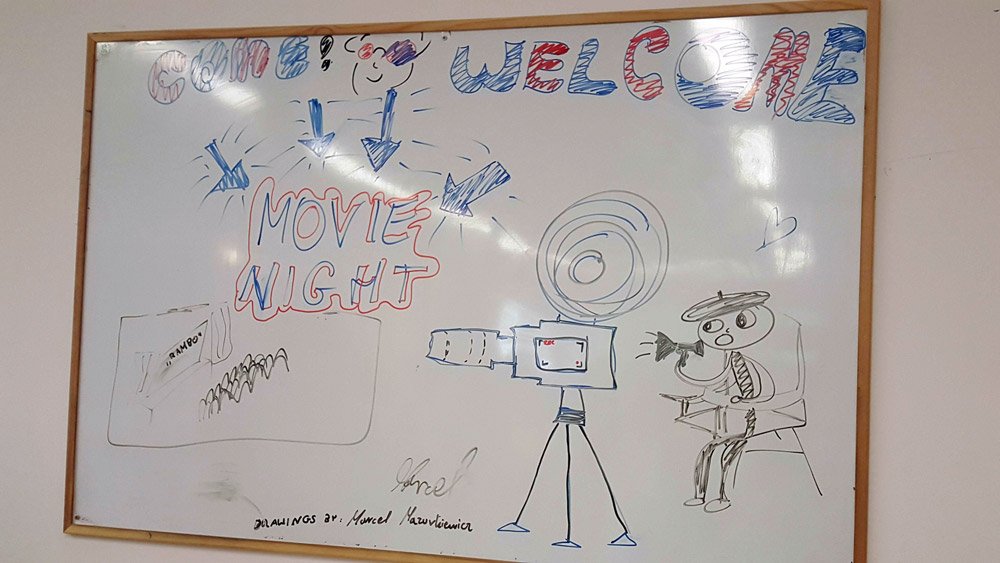 COME! WELCOME
MOVIE
NIGHT
„RAMBO"
REC
Marcel
DRAWINGS BY: Marcel